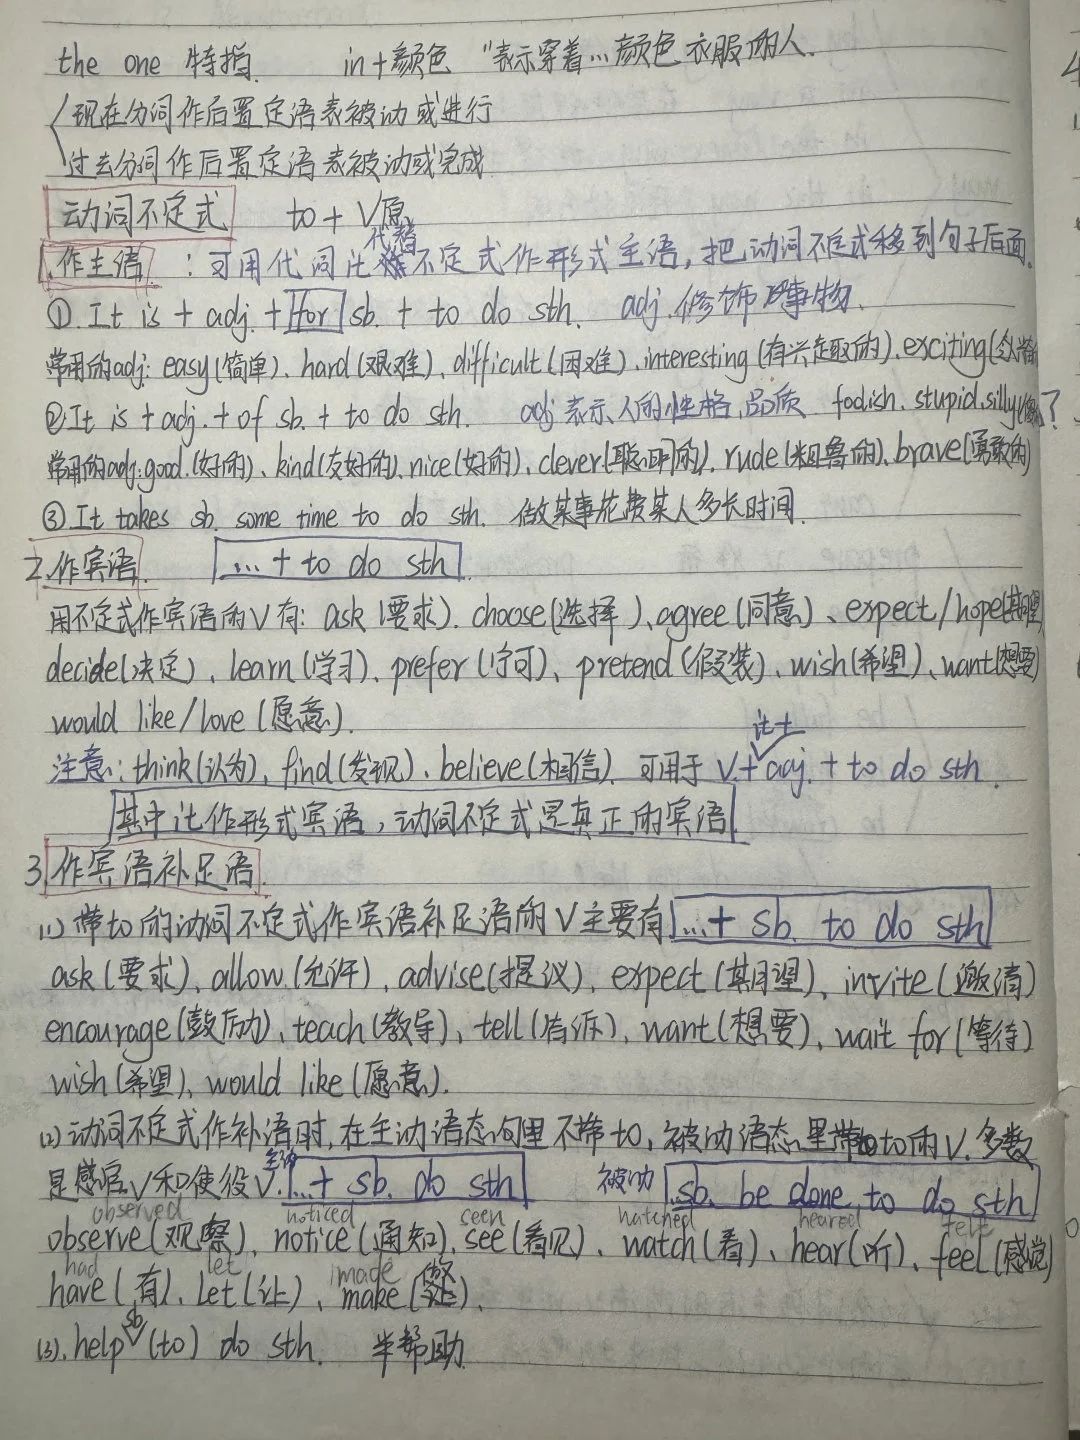 the one 特指. in+颜色 "表示穿着…颜色衣服的人.
现在分词作后置定语表被动或进行
过去分词作后置定语表被动或完成
动词不定式 to + V原
代替
1.作主语 : 可用代词it 不定式作形式主语, 把动词不定式移到句子后面.
①. It is + adj. + for sb. + to do sth. adj. 修饰事物.
常用的adj: easy(简单)、hard(艰难)、difficult(困难)、interesting(有兴趣的).exciting(
②It is + adj. + of sb. + to do sth. adj 表示人的性格,品质 foolish. stupid.silly ?
常用的adj:good.(好的)、kind(友好的).nice(好的)、clever(聪明的).rude(粗鲁的).brave(勇敢的)
③.It takes sb. some time to do sth. 做某事花费某人多长时间.
2.作宾语. …+ to do sth.
用不定式作宾语的V有: ask (要求). choose(选择)、agree(同意)、expect/hope(期望)
decide(决定)、learn(学习)、prefer(宁可)、pretend(假装)、wish(希望)、want(想要)
would like/love (愿意).
it +
注意: think(认为)、find(发现)、believe(相信). 可用于 V.+ adj. + to do sth.
其中it作形式宾语, 动词不定式是真正的宾语.
3.作宾语补足语.
(1) 带to的动词不定式作宾语补足语的V主要有 …+ sb. to do sth
ask(要求)、allow.(允许)、advise(提议)、expect(期望)、invite(邀请)
encourage(鼓励)、teach(教导)、tell(告诉)、want(想要)、wait for(等待)
wish(希望)、would like(愿意).
(2) 动词不定式作补语时,在主动语态句里不带to, 被动语态里带to的V.多数
是感官V和使役V. 主动 …+ sb. do sth 被动 sb. be done to do sth
observed noticed seen watched heared felt
observe(观察)、notice(通知).see(看见)、watch(看)、hear(听)、feel(感觉)
had let made
have(有)、let(让)、make(
sb
(3). help (to) do sth. 半帮助.